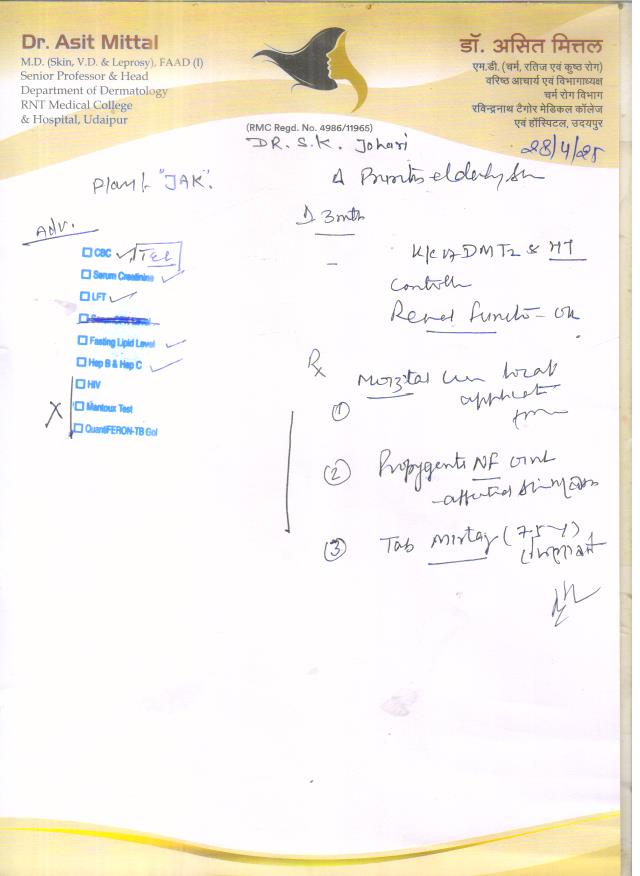 Dr. Asit Mittal
M.D. (Skin, V.D. & Leprosy), FAAD (I)
Senior Professor & Head
Department of Dermatology
RNT Medical College
& Hospital, Udaipur
डॉ. असित मित्तल
एम.डी. (चर्म, रतिज एवं कुष्ठ रोग)
वरिष्ठ आचार्य एवं विभागाध्यक्ष
चर्म रोग विभाग
रविन्द्रनाथ टैगोर मेडिकल कॉलेज
एवं हॉस्पिटल, उदयपुर
(RMC Regd. No. 4986/11965)
DR. S.K. Johari
28/4/25
"JAK".
elderly
3 mth
Adv.
CBC TEC
Serum Creatinine
LFT
Fasting Lipid Level
Hep B & Hep C
HIV
Mantoux Test
QuantiFERON-TB Gol
DMT2 & HT
Renal Functo - OK
Rx
①
local
② Propygenta NF oint
③ Tab Mirtaz (7.5